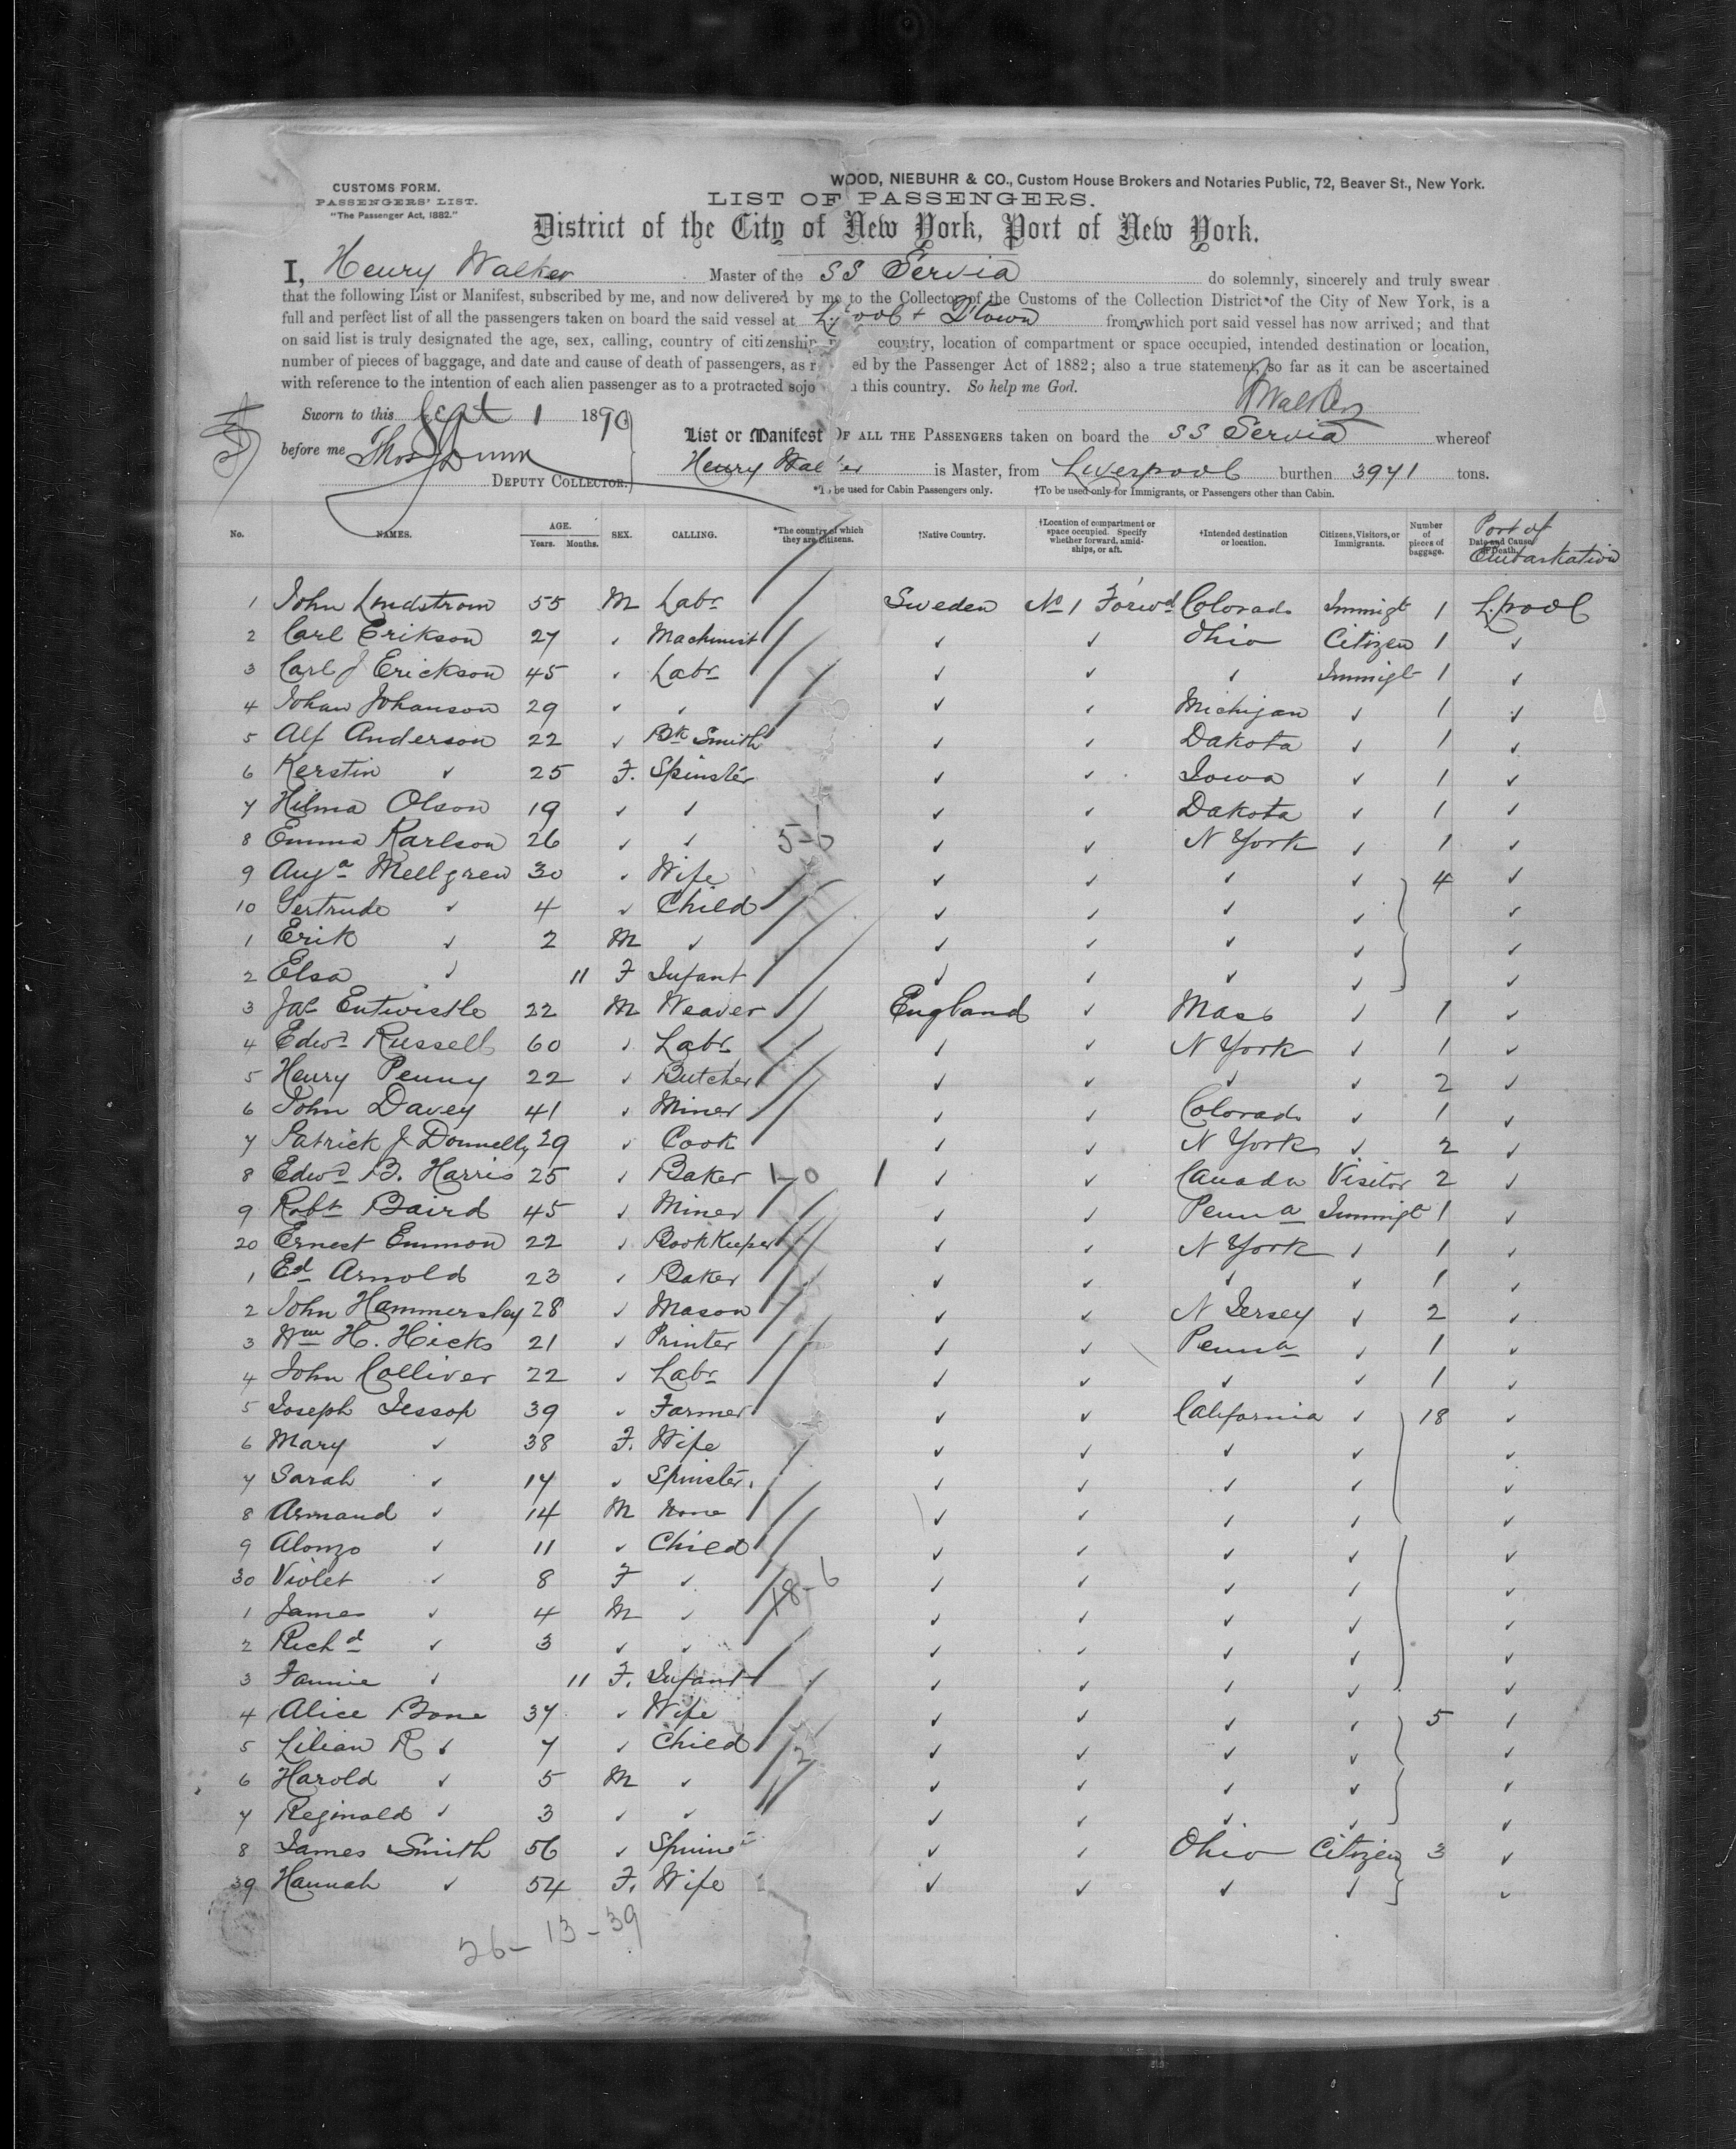 CUSTOMS FORM.
PASSENGERS' LIST.
"The Passenger Act, 1882."
WOOD, NIEBUHR & CO., Custom House Brokers and Notaries Public, 72, Beaver St., New York.
LIST OF PASSENGERS.
District of the City of New York, Port of New York.
I, Henry Walker Master of the SS Servia do solemnly, sincerely and truly swear
that the following List or Manifest, subscribed by me, and now delivered by me to the Collector of the Customs of the Collection District of the City of New York, is a
full and perfect list of all the passengers taken on board the said vessel at L'pool + Q'town from which port said vessel has now arrived; and that
on said list is truly designated the age, sex, calling, country of citizenship country, location of compartment or space occupied, intended destination or location,
number of pieces of baggage, and date and cause of death of passengers, as r ed by the Passenger Act of 1882; also a true statement, so far as it can be ascertained
with reference to the intention of each alien passenger as to a protracted sojo n this country. So help me God.
HWalker
Sworn to this Sept 1 1890
before me Thos Dunn
DEPUTY COLLECTOR.
List or Manifest OF ALL THE PASSENGERS taken on board the SS Servia whereof
Henry Walker is Master, from Liverpool burthen 3971 tons.
*To be used for Cabin Passengers only. †To be used only for Immigrants, or Passengers other than Cabin.
No. NAMES. AGE. Years. Months. SEX. CALLING. *The country of which they are citizens. †Native Country. †Location of compartment or space occupied. Specify whether forward, amidships, or aft. †Intended destination or location. Citizens, Visitors, or Immigrants. Number of pieces of baggage. Date and Cause of Death. Port of Embarkation
1 John Lindstrom 55 M Labr Sweden No 1 Forwd Colorado Immigt 1 L.pool
2 Carl Erikson 27 ✓ Machinist ✓ ✓ Ohio Citizen 1 ✓
3 Carl J Erickson 45 ✓ Labr ✓ ✓ ✓ Immigt 1 ✓
4 Johan Johanson 29 ✓ ✓ ✓ ✓ Michigan ✓ 1 ✓
5 Alf Anderson 22 ✓ Bk Smith ✓ ✓ Dakota ✓ 1 ✓
6 Kerstin ✓ 25 F. Spinster ✓ ✓ Iowa ✓ 1 ✓
7 Hilma Olson 19 ✓ ✓ ✓ ✓ Dakota ✓ 1 ✓
8 Emma Karlson 26 ✓ ✓ 5-6 ✓ ✓ N York ✓ 1 ✓
9 Auga Mellgren 30 ✓ Wife ✓ ✓ ✓ ✓ 4 ✓
10 Gertrude ✓ 4 ✓ Child ✓ ✓ ✓ ✓ ✓
1 Erik ✓ 2 M ✓ ✓ ✓ ✓ ✓ ✓
2 Elsa ✓ 11 F Infant ✓ ✓ ✓ ✓ ✓
3 Jas Entwistle 22 M Weaver England ✓ Mass ✓ 1 ✓
4 Edwd Russell 60 ✓ Labr ✓ ✓ N York ✓ 1 ✓
5 Henry Penny 22 ✓ Butcher ✓ ✓ ✓ ✓ 2 ✓
6 John Davey 41 ✓ Miner ✓ ✓ Colorado ✓ 1 ✓
7 Patrick J Donnelly 29 ✓ Cook ✓ ✓ N York ✓ 2 ✓
8 Edwd B. Harris 25 ✓ Baker 1-0 1 ✓ ✓ Canada Visitor 2 ✓
9 Robt Baird 45 ✓ Miner ✓ ✓ Penna Immigt 1 ✓
20 Ernest Emmon 22 ✓ BookKeeper ✓ ✓ N York ✓ 1 ✓
1 Ed Arnold 23 ✓ Baker ✓ ✓ ✓ ✓ 1 ✓
2 John Hammersley 28 ✓ Mason ✓ ✓ N Jersey ✓ 2 ✓
3 Wm H. Hicks 21 ✓ Printer ✓ ✓ Penna ✓ 1 ✓
4 John Colliver 22 ✓ Labr ✓ ✓ ✓ ✓ 1 ✓
5 Joseph Jessop 39 ✓ Farmer ✓ ✓ California ✓ 18 ✓
6 Mary ✓ 38 F. Wife ✓ ✓ ✓ ✓ ✓
7 Sarah ✓ 17 ✓ Spinster. ✓ ✓ ✓ ✓ ✓
8 Armand ✓ 14 M None ✓ ✓ ✓ ✓ ✓
9 Alonzo ✓ 11 ✓ Child ✓ ✓ ✓ ✓ ✓
30 Violet ✓ 8 F ✓ 18-6 ✓ ✓ ✓ ✓ ✓
1 James ✓ 4 M ✓ ✓ ✓ ✓ ✓ ✓
2 Richd ✓ 3 ✓ ✓ ✓ ✓ ✓ ✓ ✓
3 Fannie ✓ 11 F. Infant ✓ ✓ ✓ ✓ ✓
4 Alice Bone 37 ✓ Wife ✓ ✓ ✓ ✓ 5 ✓
5 Lilian R ✓ 7 ✓ Child 2 ✓ ✓ ✓ ✓ ✓
6 Harold ✓ 5 M ✓ ✓ ✓ ✓ ✓ ✓
7 Reginald ✓ 3 ✓ ✓ ✓ ✓ ✓ ✓ ✓
8 James Smith 56 ✓ ✓ ✓ Ohio Citizen 3 ✓
39 Hannah ✓ 54 F. Wife ✓ ✓ ✓ ✓ ✓
26-13-39